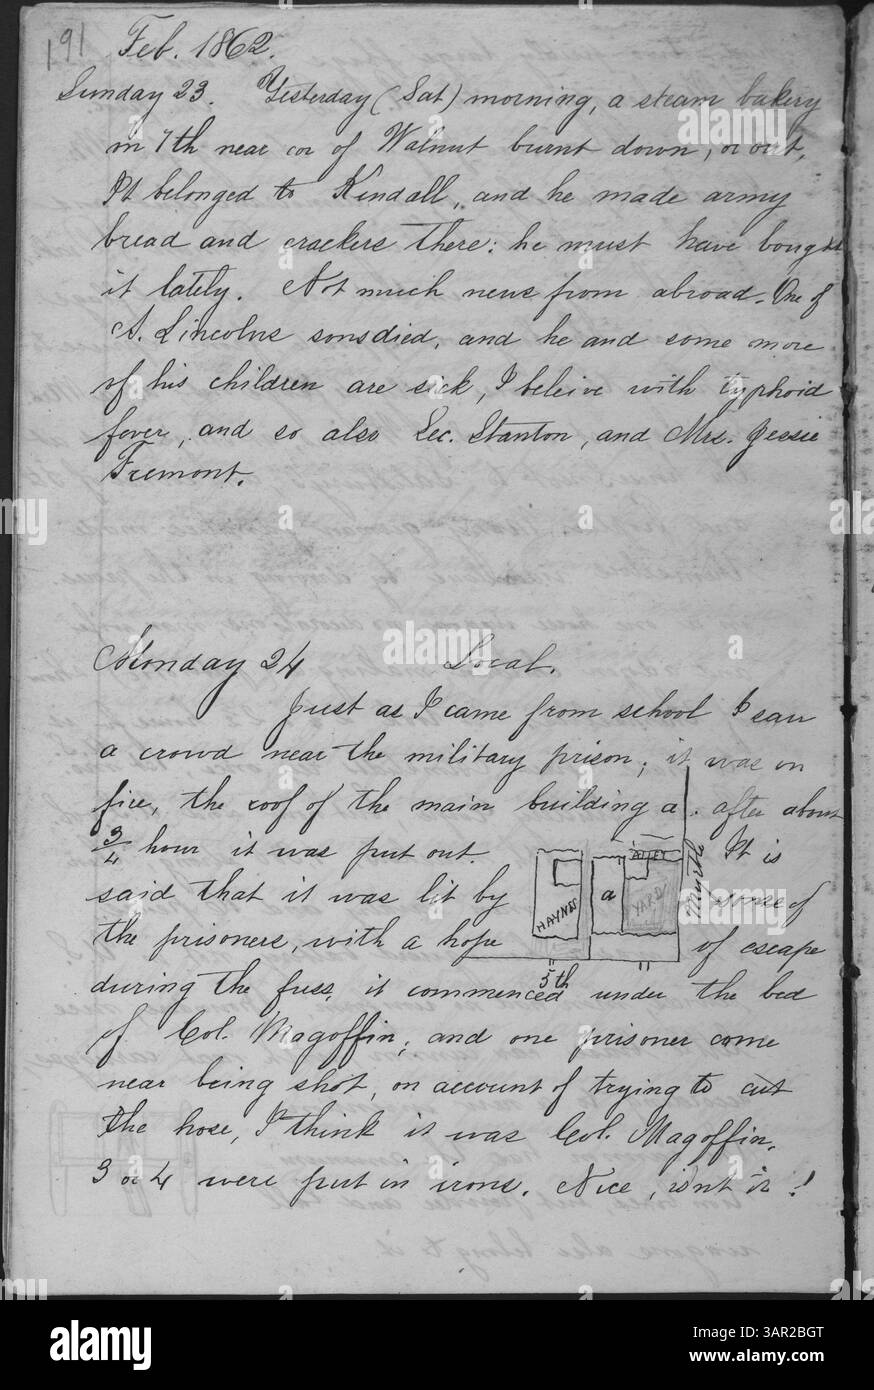 191
Feb. 1862.
Sunday 23. Yesterday (Sat) morning, a steam bakery
in 7th near cor of Walnut burnt down, or out,
It belonged to Kendall, and he made army
bread and crackers there: he must have bought
it lately. Not much news from abroad. One of
A. Lincolns sons died, and he and some more
of his children are sick, I beleive with typhoid
fever, and so also Sec. Stanton, and Mrs. Jessie
Fremont.
Monday 24 Local.
Just as I came from school I saw
a crowd near the military prison; it was on
fire, the roof of the main building a. after about
3/4 hour it was put out. It is
ALLEY
Myrtle
said that it was lit by some of
HAYNES
a
YARD
the prisoners, with a hope of escape
5th
during the fuss, it commenced under the bed
of Col. Magoffin; and one prisoner come
near being shot, on account of trying to cut
the hose, I think it was Col. Magoffin.
3 or 4 were put in irons. Nice, isnt it!
alamy
Image ID: 3AR2BGT
www.alamy.com